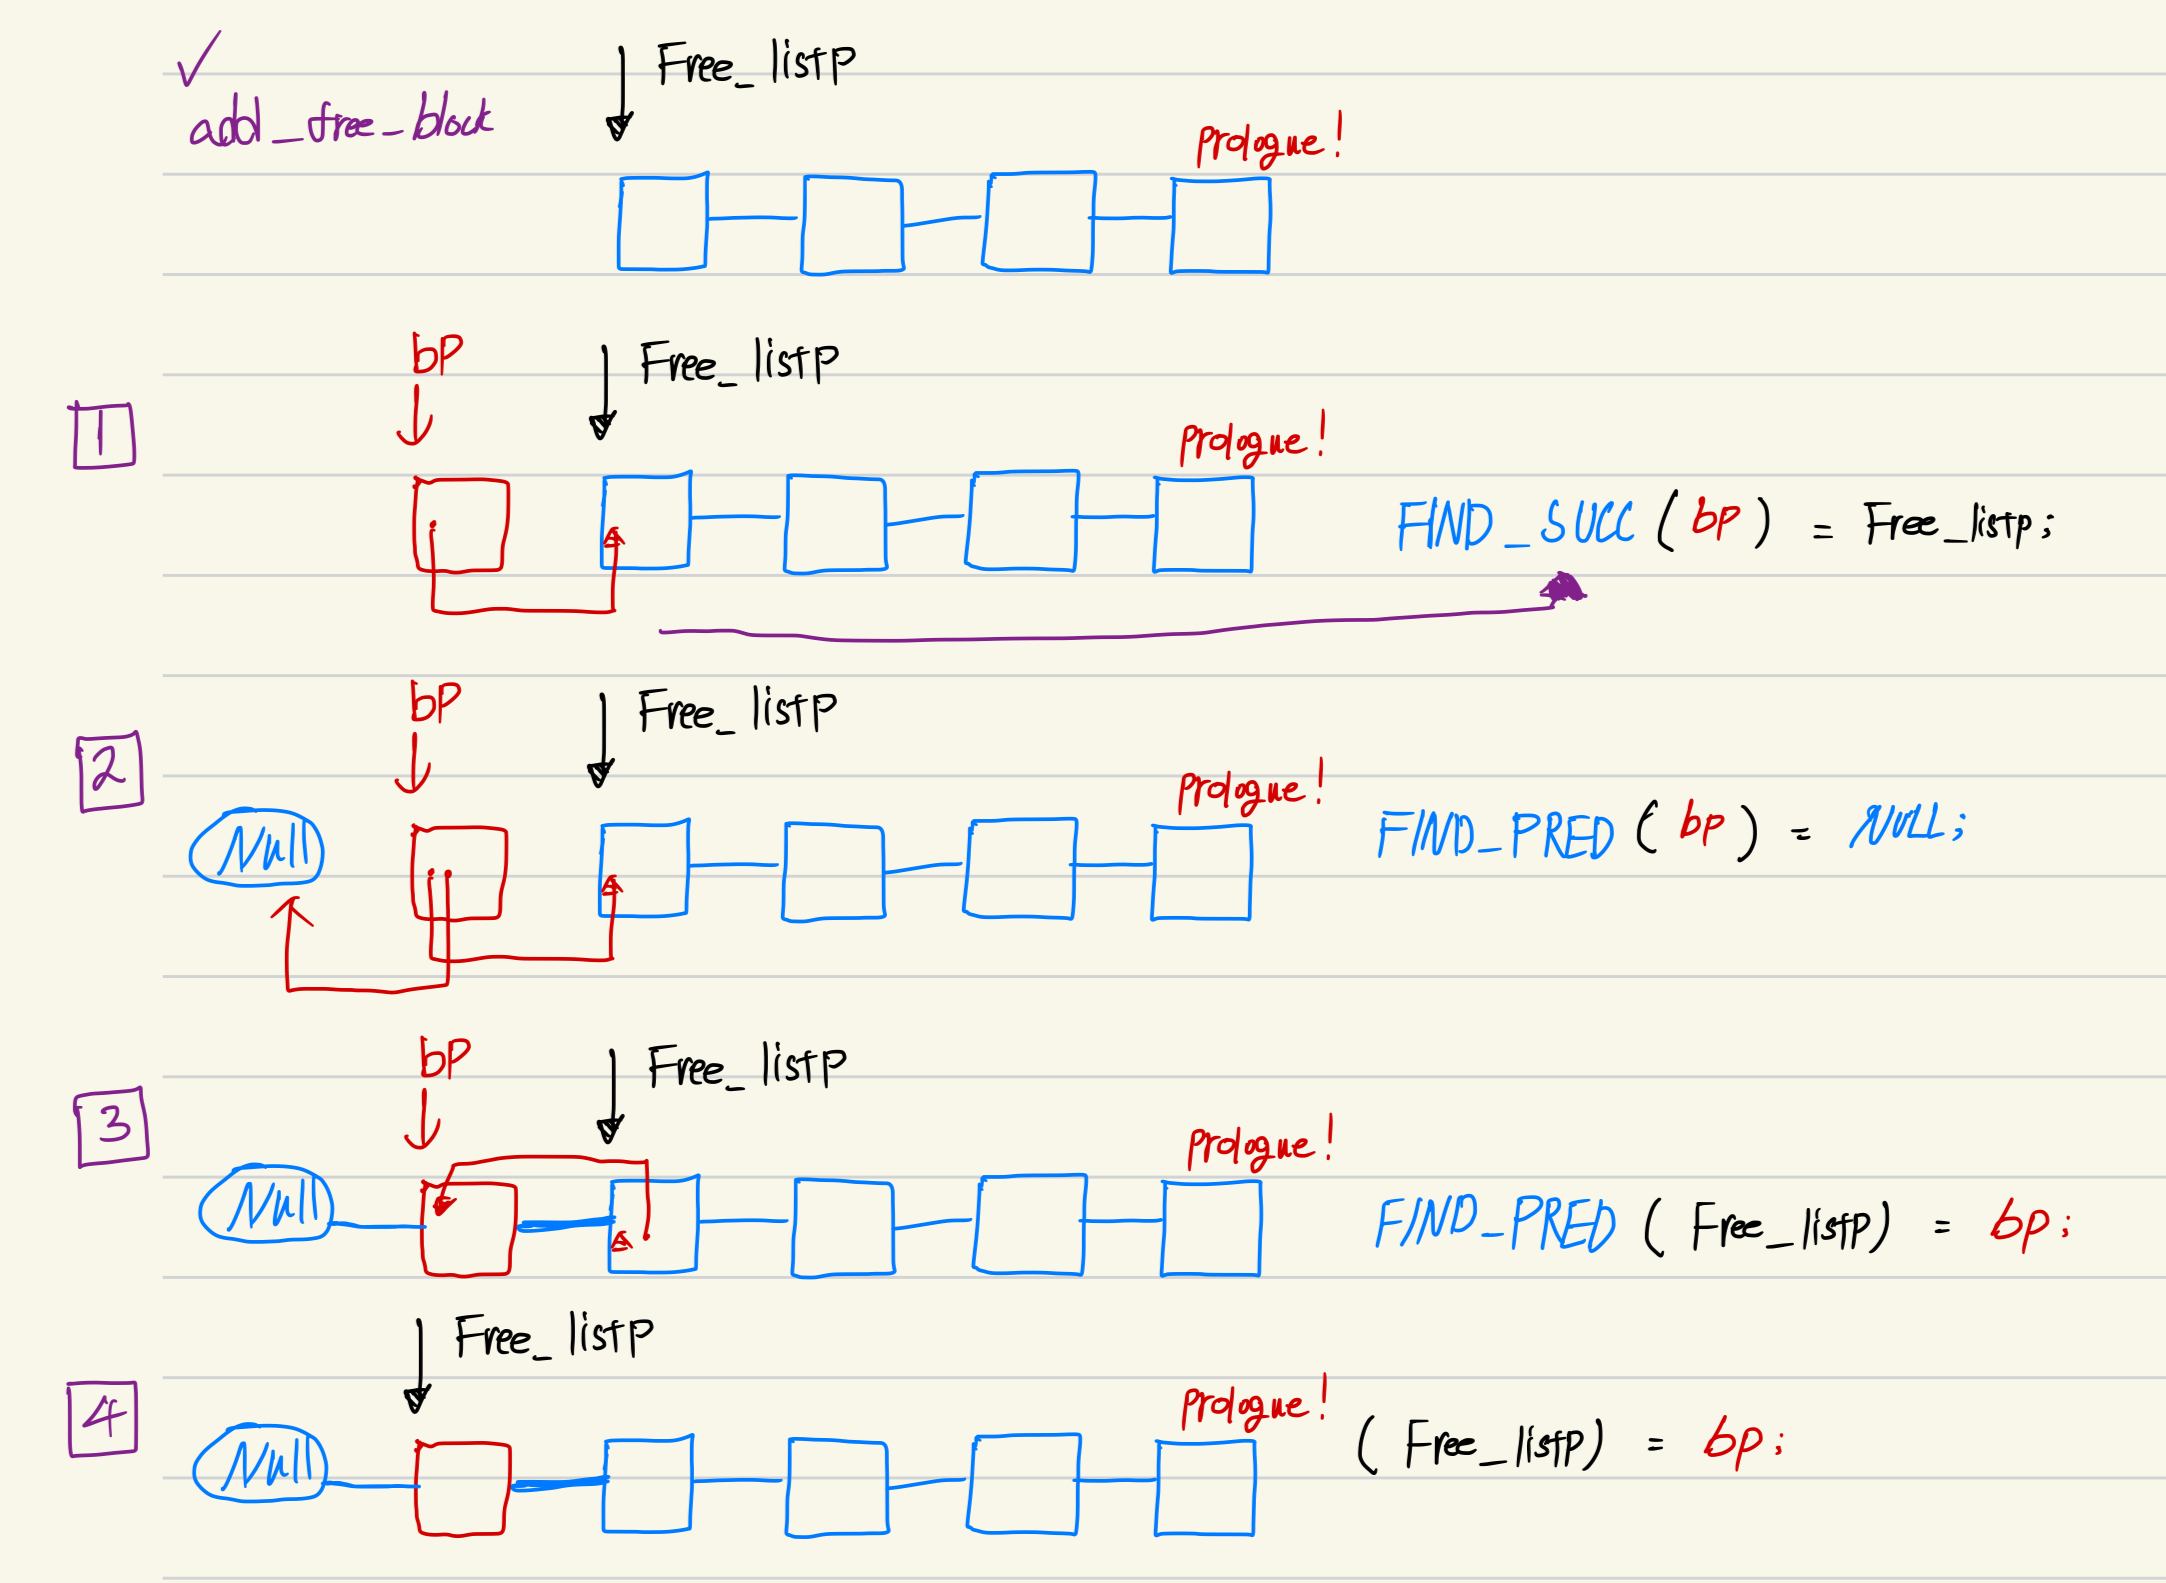 Free_listp
add_free_block
Prologue!
bp
Free_listp
1
Prologue!
FIND_SUCC (bp) = Free_listp;
bp
Free_listp
2
Prologue!
Null
FIND_PRED (bp) = NULL;
bp
Free_listp
3
Prologue!
Null
FIND_PRED (Free_listp) = bp;
Free_listp
4
Prologue!
Null
(Free_listp) = bp;